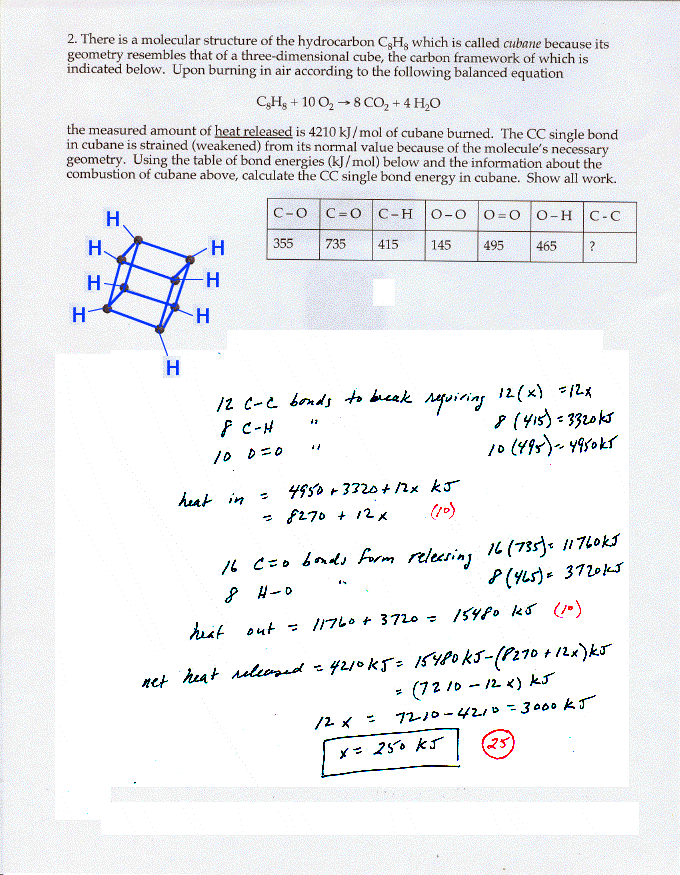 2. There is a molecular structure of the hydrocarbon C₈H₈ which is called cubane because its
geometry resembles that of a three-dimensional cube, the carbon framework of which is
indicated below. Upon burning in air according to the following balanced equation
C₈H₈ + 10 O₂ → 8 CO₂ + 4 H₂O
the measured amount of heat released is 4210 kJ/mol of cubane burned. The CC single bond
in cubane is strained (weakened) from its normal value because of the molecule's necessary
geometry. Using the table of bond energies (kJ/mol) below and the information about the
combustion of cubane above, calculate the CC single bond energy in cubane. Show all work.
C-O C=O C-H O-O O=O O-H C-C
355 735 415 145 495 465 ?
H
H H
H H
H H
H
12 C-C bonds to break requiring 12(x) = 12x
8 C-H " 8 (415) = 3320 kJ
10 O=O " 10 (495) = 4950 kJ
heat in = 4950 + 3320 + 12x kJ
= 8270 + 12x (10)
16 C=O bonds form releasing 16 (735) = 11760 kJ
8 H-O " 8 (465) = 3720 kJ
heat out = 11760 + 3720 = 15480 kJ (10)
net heat released = 4210 kJ = 15480 kJ - (8270 + 12x) kJ
= (7210 - 12x) kJ
12x = 7210 - 4210 = 3000 kJ
x = 250 kJ 25